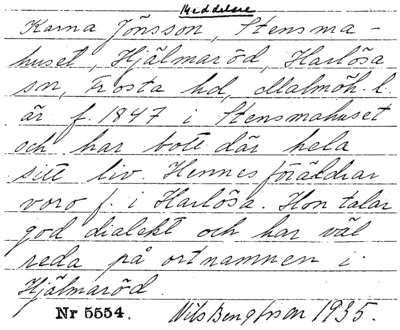 Meddelare
Karna Jönsson, Stensma-
huset, Hjälmaröd, Harlösa
sn, Frosta hd, Malmöh. l.
är f. 1847 i Stensmahuset
och har bott där hela
sitt liv. Hennes föräldrar
voro f. i Harlösa. Hon talar
god dialekt och har väl
reda på ortnamnen i
Hjälmaröd.
Nr 5554. Nils Bengtsson 1935.